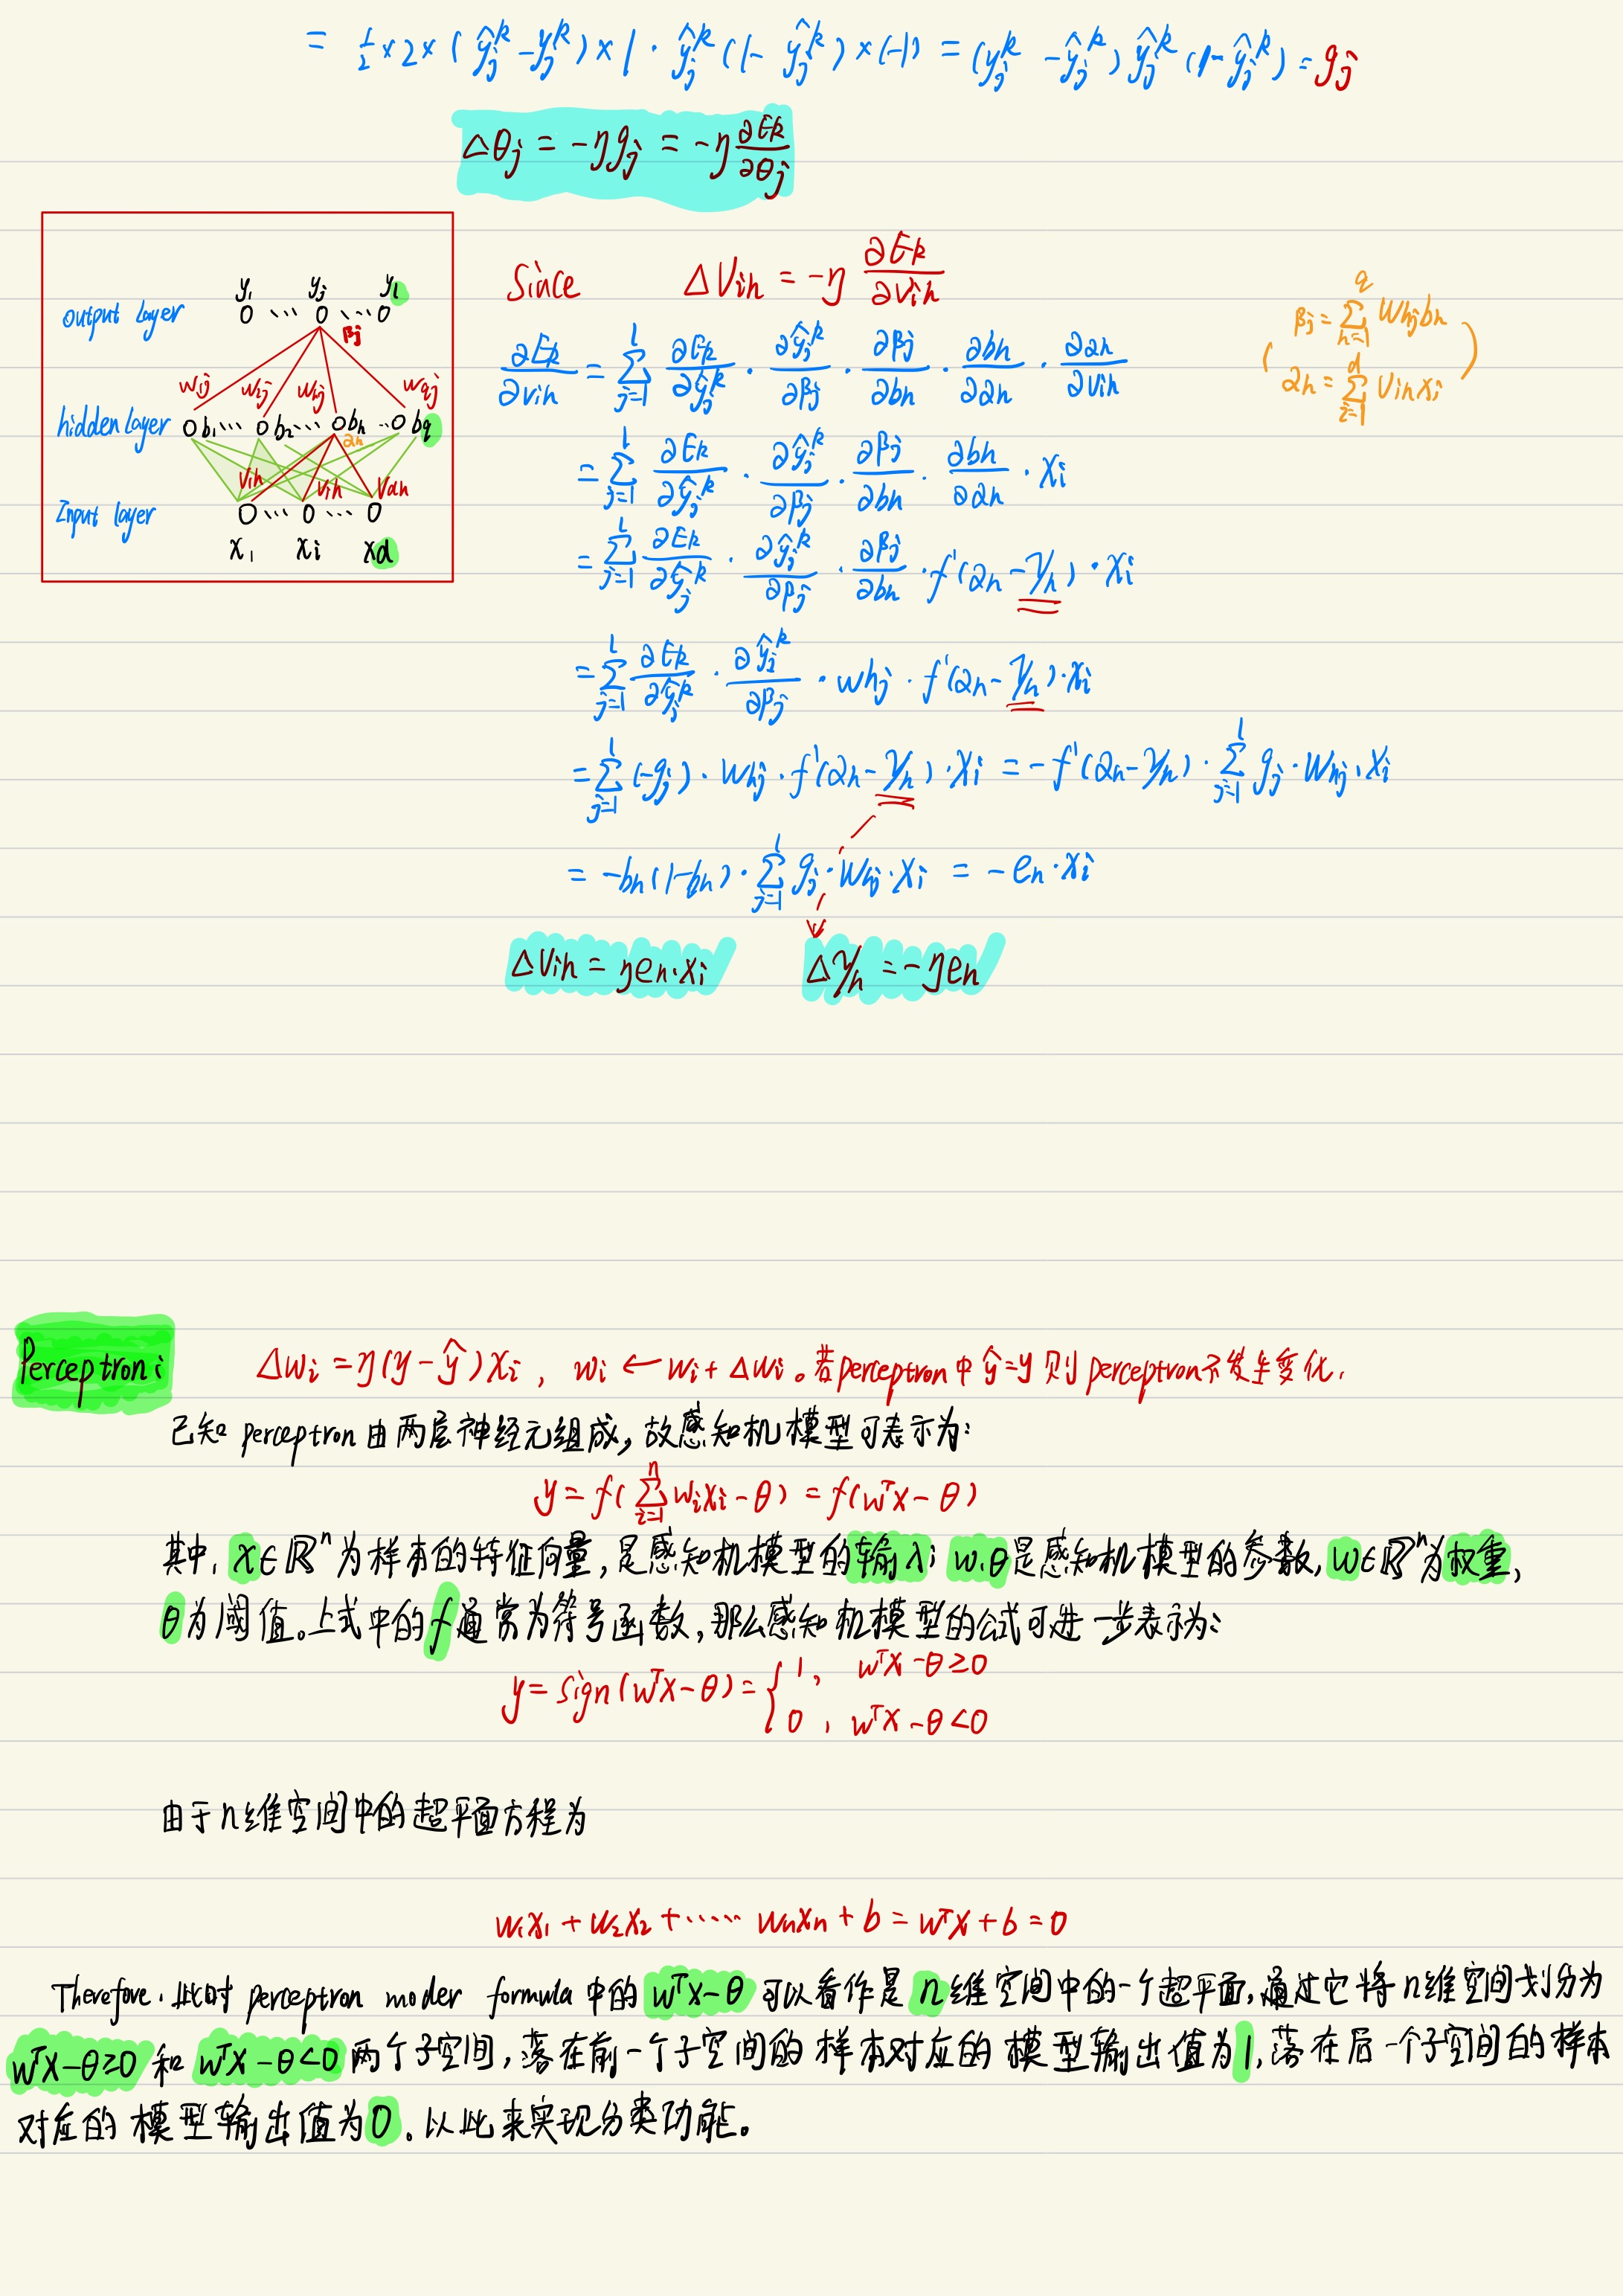 = 1/2 × 2 × (ŷ_j^k − y_j^k) × 1 · ŷ_j^k (1 − ŷ_j^k) × (−1) = (y_j^k − ŷ_j^k) ŷ_j^k (1 − ŷ_j^k) = g_j
Δθ_j = −ηg_j = −η ∂E_k/∂θ_j
output layer y_1 y_j y_l
0 ... 0 ... 0
β_j
w_1j w_2j w_hj w_qj
hidden layer 0 b_1 ... 0 b_2 ... 0 b_h ... 0 b_q
α_h
V_ih V_ih V_dh
Input layer 0 ... 0 ... 0
x_1 x_i x_d
Since ΔV_ih = −η ∂E_k/∂v_ih
∂E_k/∂v_ih = Σ_{j=1}^{l} ∂E_k/∂ŷ_j^k · ∂ŷ_j^k/∂β_j · ∂β_j/∂b_h · ∂b_h/∂α_h · ∂α_h/∂v_ih
(β_j = Σ_{h=1}^{q} w_hj b_h
α_h = Σ_{i=1}^{d} v_ih x_i)
= Σ_{j=1}^{l} ∂E_k/∂ŷ_j^k · ∂ŷ_j^k/∂β_j · ∂β_j/∂b_h · ∂b_h/∂α_h · x_i
= Σ_{j=1}^{l} ∂E_k/∂ŷ_j^k · ∂ŷ_j^k/∂β_j · ∂β_j/∂b_h · f'(α_h − γ_h) · x_i
= Σ_{j=1}^{l} ∂E_k/∂ŷ_j^k · ∂ŷ_j^k/∂β_j · w_hj · f'(α_h − γ_h) · x_i
= Σ_{j=1}^{l} (−g_j) · w_hj · f'(α_h − γ_h) · x_i = −f'(α_h − γ_h) · Σ_{j=1}^{l} g_j · w_hj · x_i
= −b_h(1−b_h) · Σ_{j=1}^{l} g_j · w_hj · x_i = −e_h · x_i
ΔV_ih = ηe_h·x_i Δγ_h = −ηe_h
Perceptron: Δw_i = η(y − ŷ)x_i, w_i ← w_i + Δw_i。若perceptron中 ŷ=y 则 perceptron不发生变化,
已知 perceptron 由两层神经元组成, 故感知机模型可表示为:
y = f(Σ_{i=1}^{n} w_i x_i − θ) = f(w^T x − θ)
其中, x∈R^n 为样本的特征向量, 是感知机模型的输入; w,θ是感知机模型的参数, w∈R^n为权重,
θ为阈值。上式中的f通常为符号函数, 那么感知机模型的公式可进一步表示为:
y = sign(w^T x − θ) = { 1, w^T x − θ ≥ 0
0, w^T x − θ < 0
由于n维空间中的超平面方程为
w_1x_1 + w_2x_2 + ...... w_nx_n + b = w^T x + b = 0
Therefore, 此时 perceptron moder formula 中的 w^T x − θ 可以看作是 n 维空间中的一个超平面, 通过它将 n维空间划分为
w^T x − θ ≥ 0 和 w^T x − θ < 0 两个子空间, 落在前一个子空间的样本对应的模型输出值为1, 落在后一个子空间的样本
对应的模型输出值为0, 以此来实现分类功能。